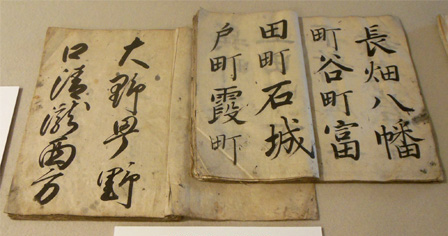 長畑八幡
町谷町富
田町石城
戸町霞町
大野與野
口清瀧西方